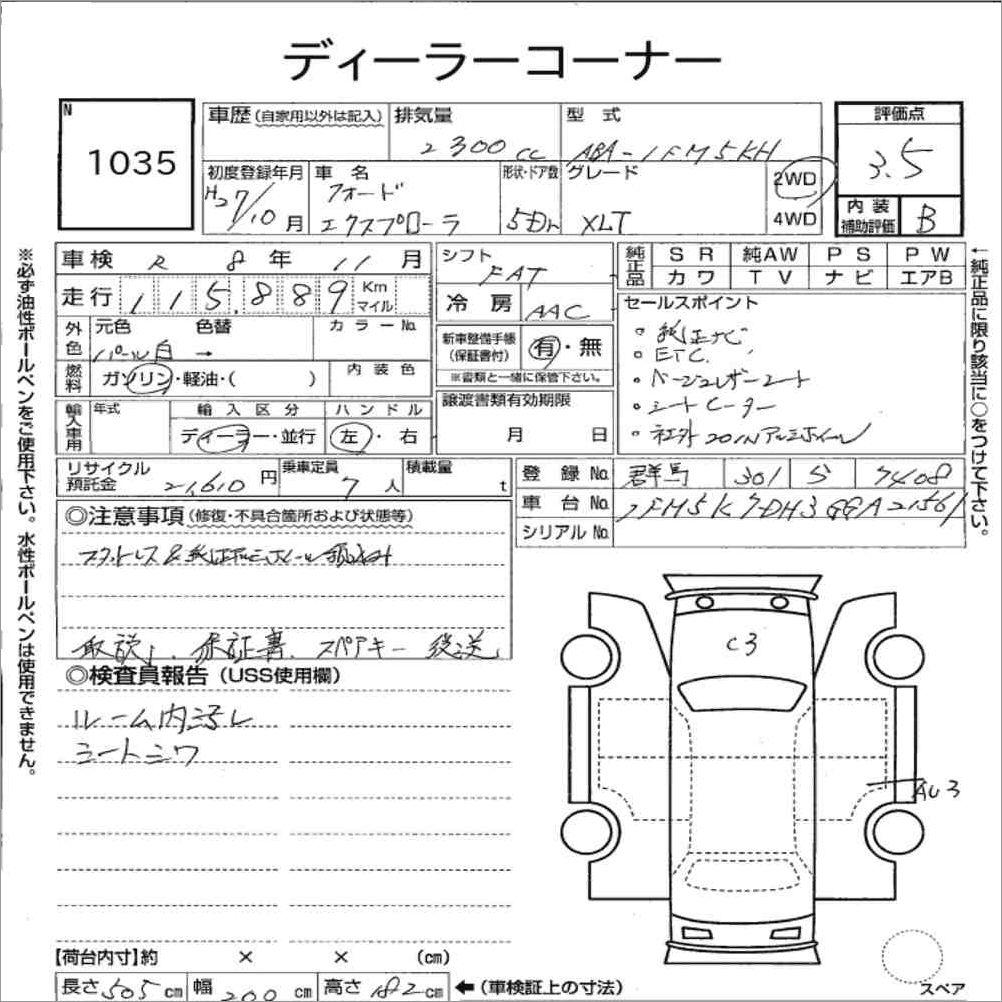 ディーラーコーナー
N
1035
車歴 (自家用以外は記入)
排気量
2300cc
型式
ABA-1FM5KH
評価点
3.5
初度登録年月
H27/10月
車名
フォード
エクスプローラ
形状・ドア数
5Dr
グレード
XLT
2WD
4WD
内装
補助評価
B
車検 R 8年 11月
走行 115,889 Km マイル
外色
元色
色替
カラーNo.
パール白 →
燃料
ガソリン・軽油・( )
内装色
輸入車用
年式
輸入区分
ディーラー・並行
ハンドル
左・右
シフト
FAT
冷房
AAC
新車整備手帳
(保証書付)
有・無
※書類と一緒に保管下さい。
譲渡書類有効期限
月 日
純正品
SR 純AW PS PW
カワ TV ナビ エアB
セールスポイント
・純正ナビ
・ETC.
・ベージュレザーシート
・シートヒーター
・社外20INアルミホイール
リサイクル
預託金
21,610円
乗車定員
7人
積載量
t
登録No. 群馬 301 5 7408
車台No.
シリアルNo.
◎注意事項 (修復・不具合箇所および状態等)
スタットレス&純正アルミホイール積込み
取説、保証書、スペアキー 後送
◎検査員報告 (USS使用欄)
ルーム内汚レ
シートシワ
C3
AU3
【荷台内寸】約 × × (cm)
長さ505cm 幅200cm 高さ182cm ←(車検証上の寸法)
スペア
※必ず油性ボールペンをご使用下さい。水性ボールペンは使用できません。
←純正品に限り該当に○をつけて下さい。